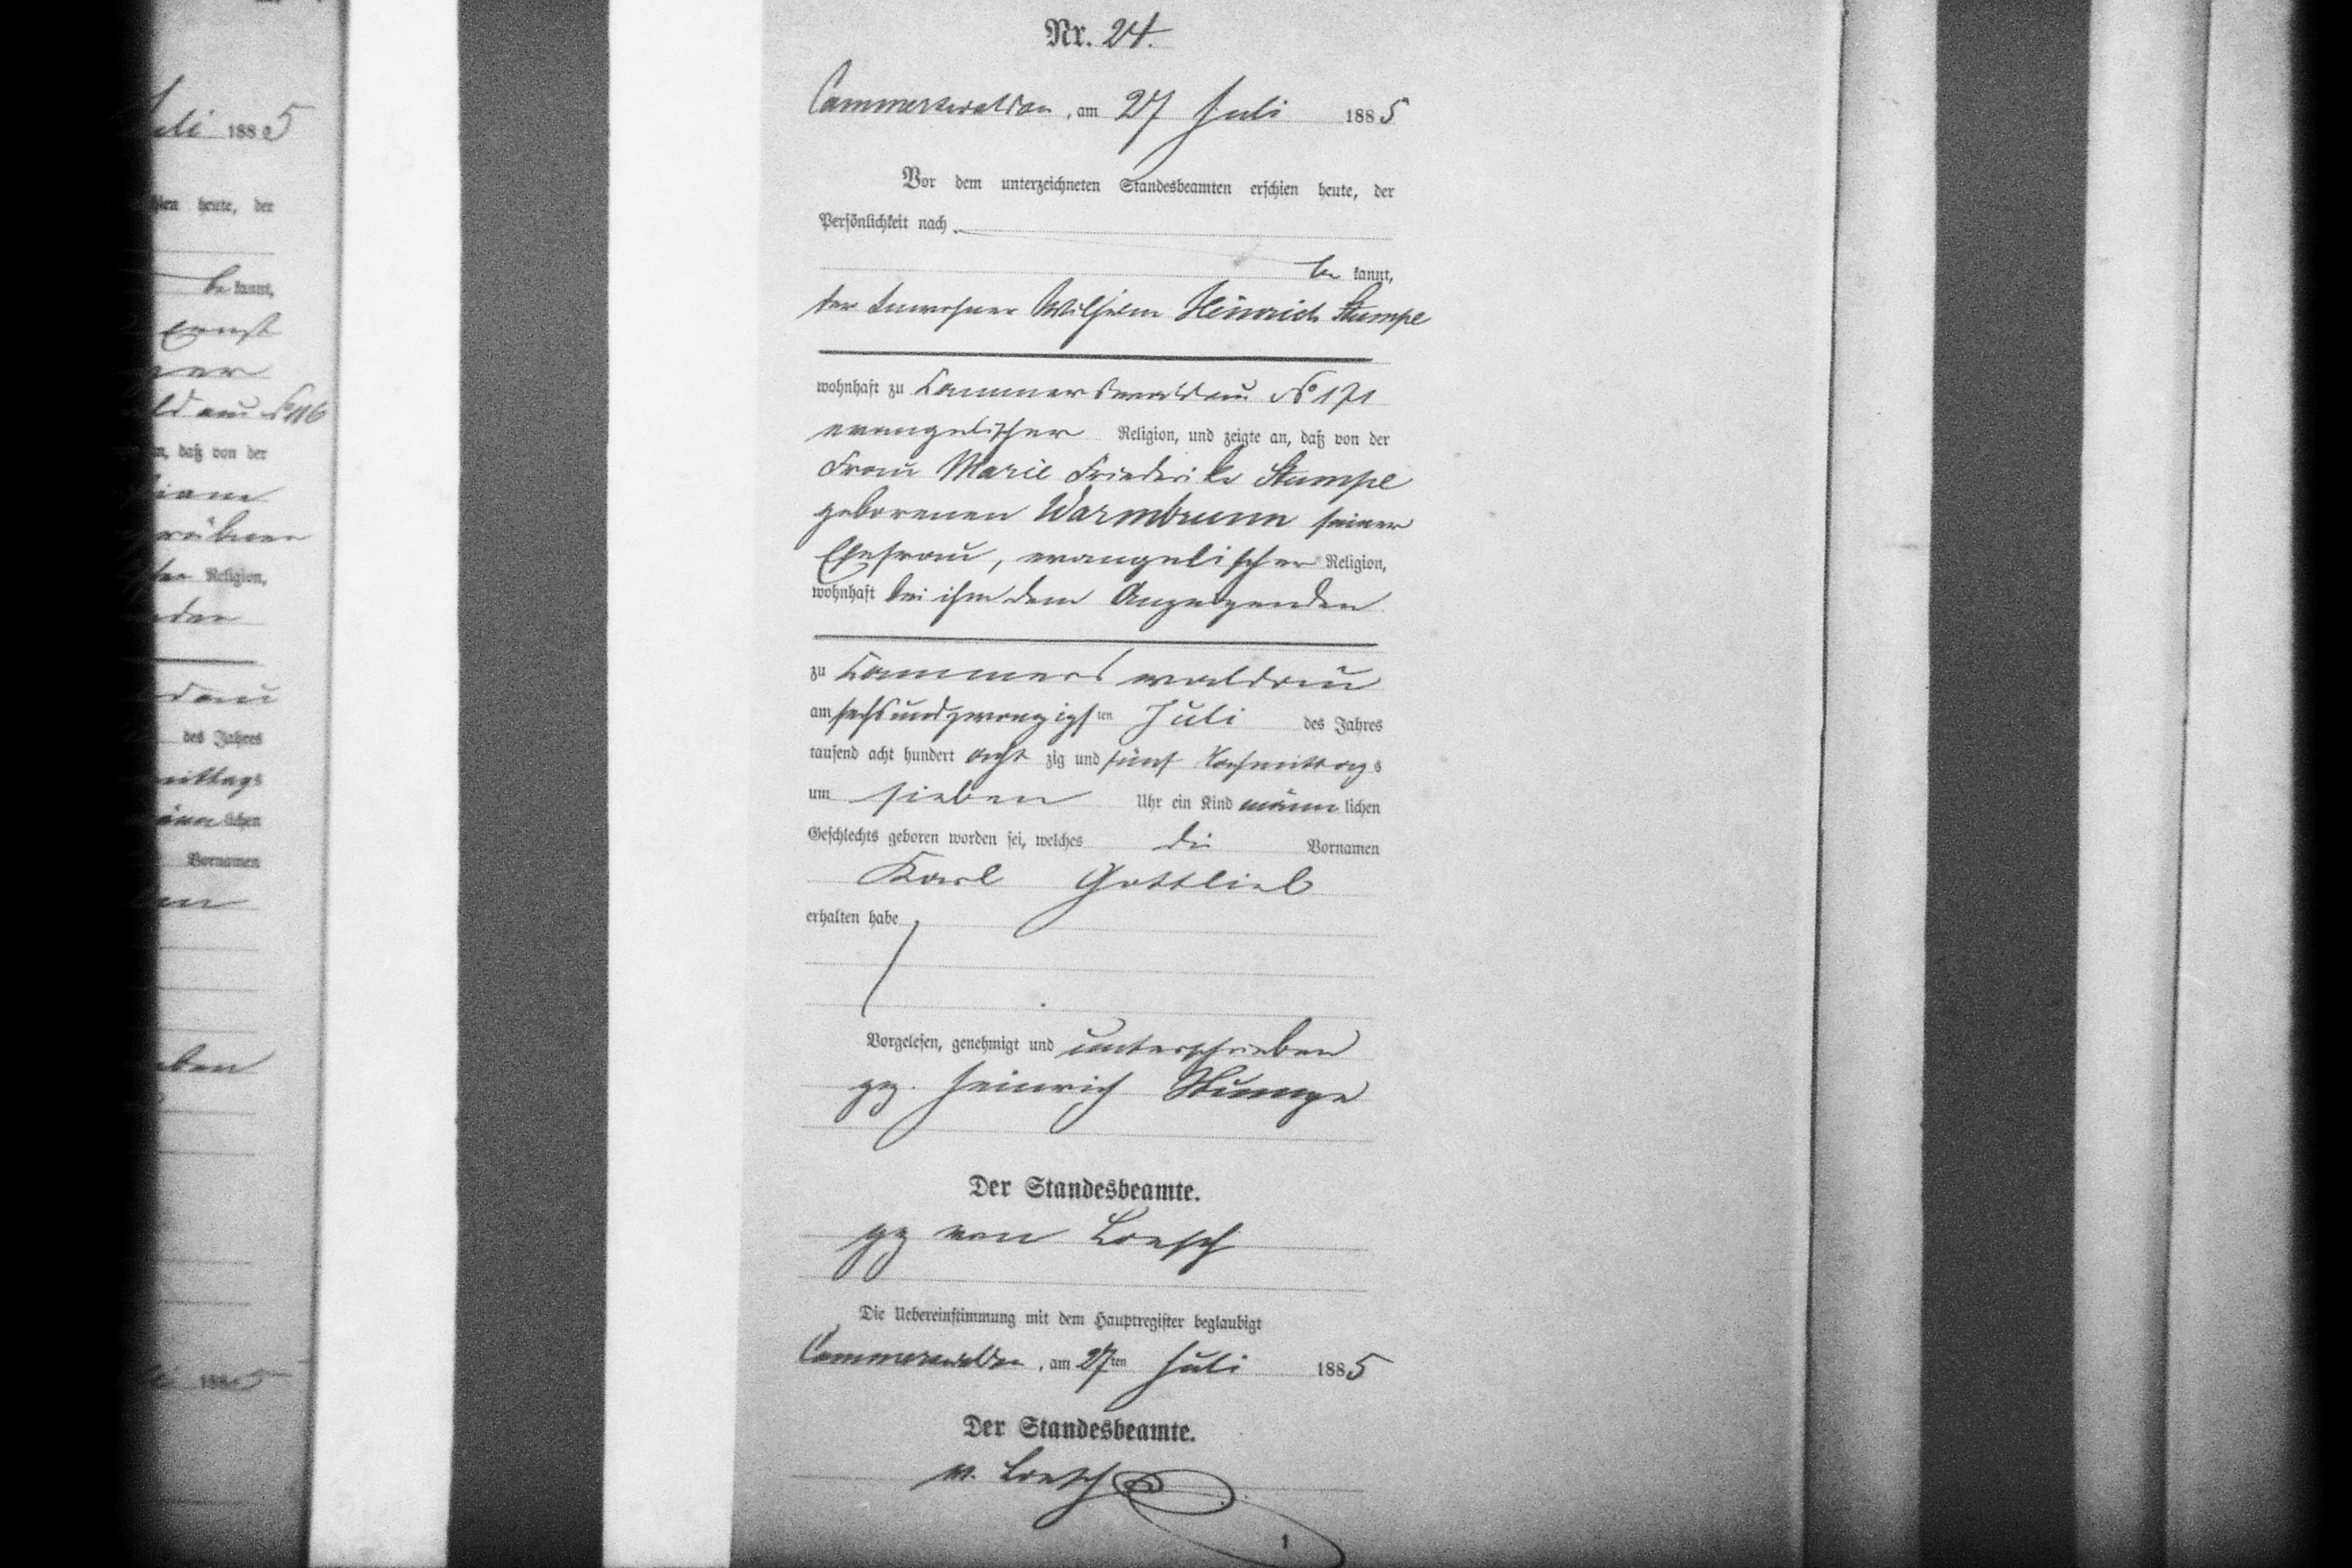 uli 1885
hien heute, der
be kannt,
Ernst
ner
ld au No 116
n, daß von der
Religion,
der
dau
des Jahres
mittags
männlichen
Vornamen
ben
1885
Nr. 24.
Cammerswaldau, am 27 Juli 1885
Vor dem unterzeichneten Standesbeamten erschien heute, der
Persönlichkeit nach
be kannt,
der Inwohner Wilhelm Heinrich Stumpe
wohnhaft zu Cammerswaldau No 171
evangelischer Religion, und zeigte an, daß von der
Frau Marie Friederike Stumpe
geborenen Warmbrunn seiner
Ehefrau, evangelischer Religion,
wohnhaft bei ihm dem Anzeigenden
zu Cammerswaldau
am sechsundzwanzigsten Juli des Jahres
tausend acht hundert acht zig und fünf Nachmittags
um sieben Uhr ein Kind männlichen
Geschlechts geboren worden sei, welches die Vornamen
Karl Gottlieb
erhalten habe
Vorgelesen, genehmigt und unterschrieben
gz. Heinrich Stumpe
Der Standesbeamte.
gz von Loesch
Die Uebereinstimmung mit dem Hauptregister beglaubigt
Cammerswaldau, am 27ten Juli 1885
Der Standesbeamte.
v. Loesch